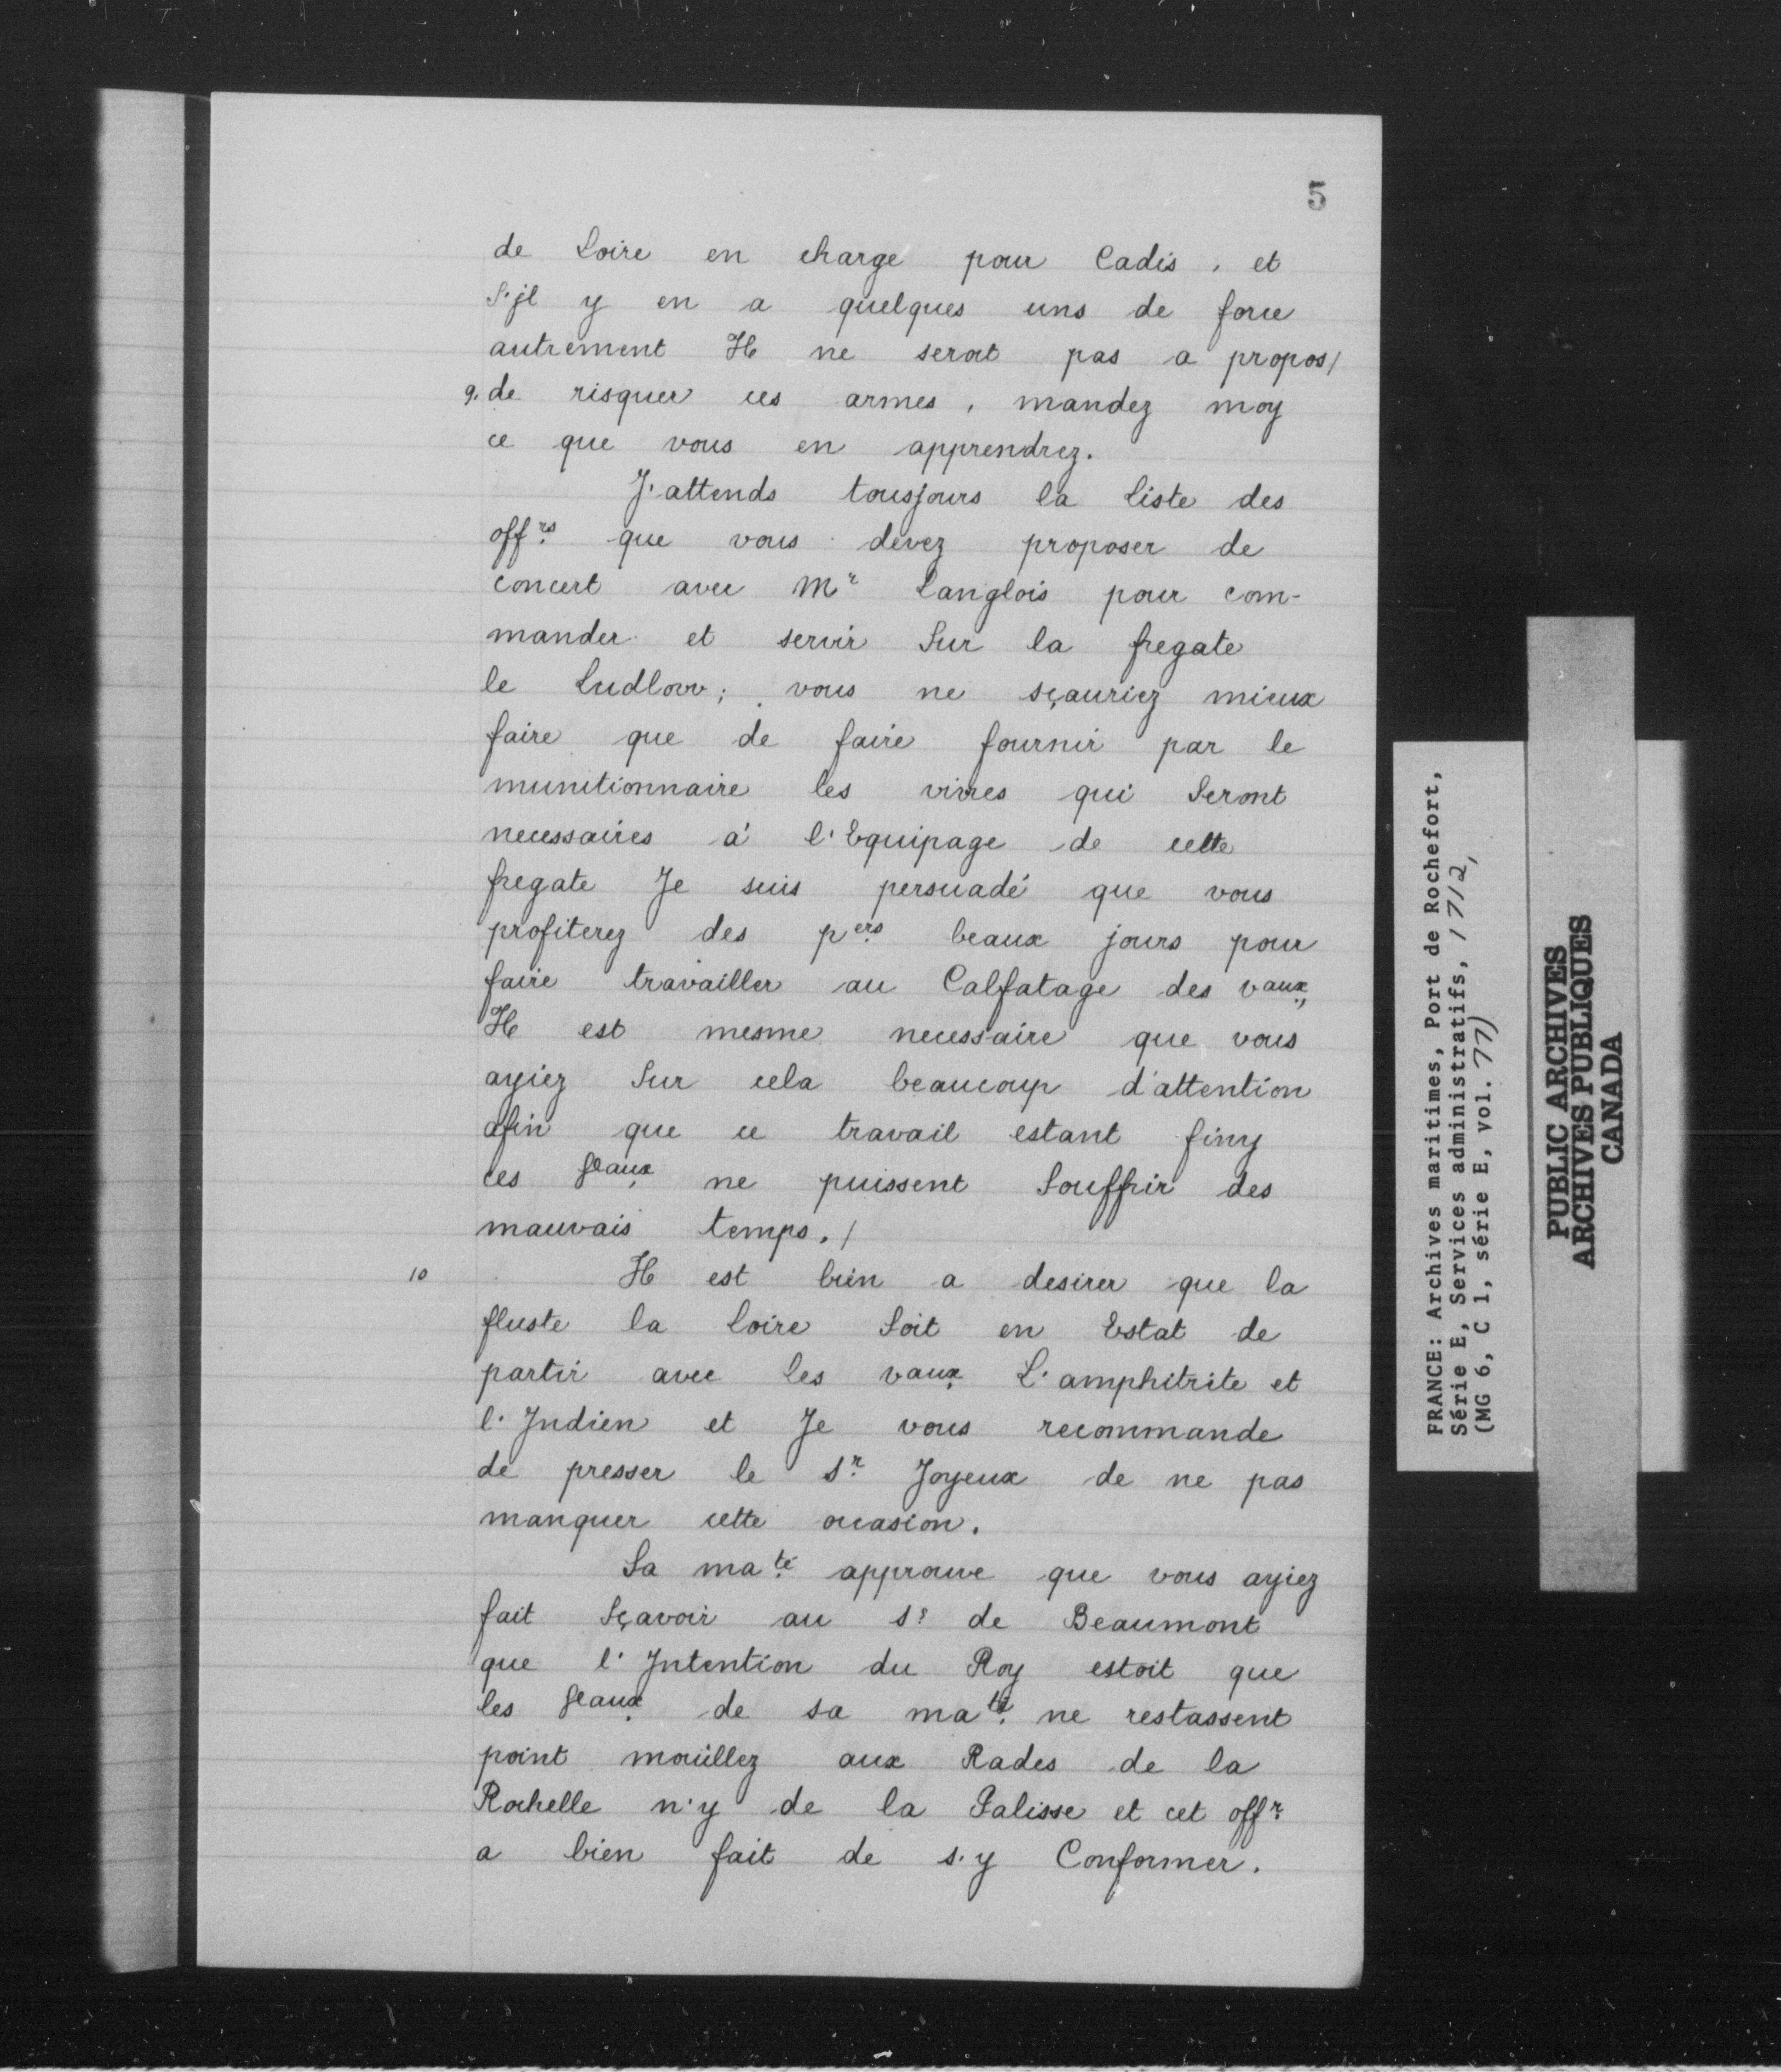 5
de Loire en charge pour Cadis, et
S'jl y en a quelques uns de force
autrement Il ne seroit pas a propos/
9. de risquer ces armes, mandez moy
ce que vous en apprendrez.
J'attends tousjours la liste des
offrs que vous devez proposer de
concert avec Mr Langlois pour com-
mander et servir Sur la fregate
le Ludlovv; vous ne sçauriez mieux
faire que de faire fournir par le
munitionnaire les vivres qui Seront
necessaires á l'Equipage de cette
fregate Je suis persuadé que vous
profiterez des pers beaux jours pour
faire travailler au Calfatage des vaux,
Il est mesme necessaire que vous
ayiez Sur cela beaucoup d'attention
afin que ce travail estant finy
ces ne puissent Souffrir des
mauvais temps./
10 Il est bien a desirer que la
fluste la Loire Soit en Estat de
partir avec les vaux L'amphitrite et
l'Jndien et Je vous recommande
de presser le Sr Joyeux de ne pas
manquer cette occasion.
Sa maté approuve que vous ayiez
fait Sçavoir au Sr de Beaumont
que l'Intention du Roy estoit que
les de sa maté ne restassent
point moüillez aux Rades de la
Rochelle n'y de la Palisse et cet offr
a bien fait de s'y Conformer.
FRANCE: Archives maritimes, Port de Rochefort,
Série E, Services administratifs, 1712,
(MG 6, C 1, série E, vol. 77)
PUBLIC ARCHIVES
ARCHIVES PUBLIQUES
CANADA